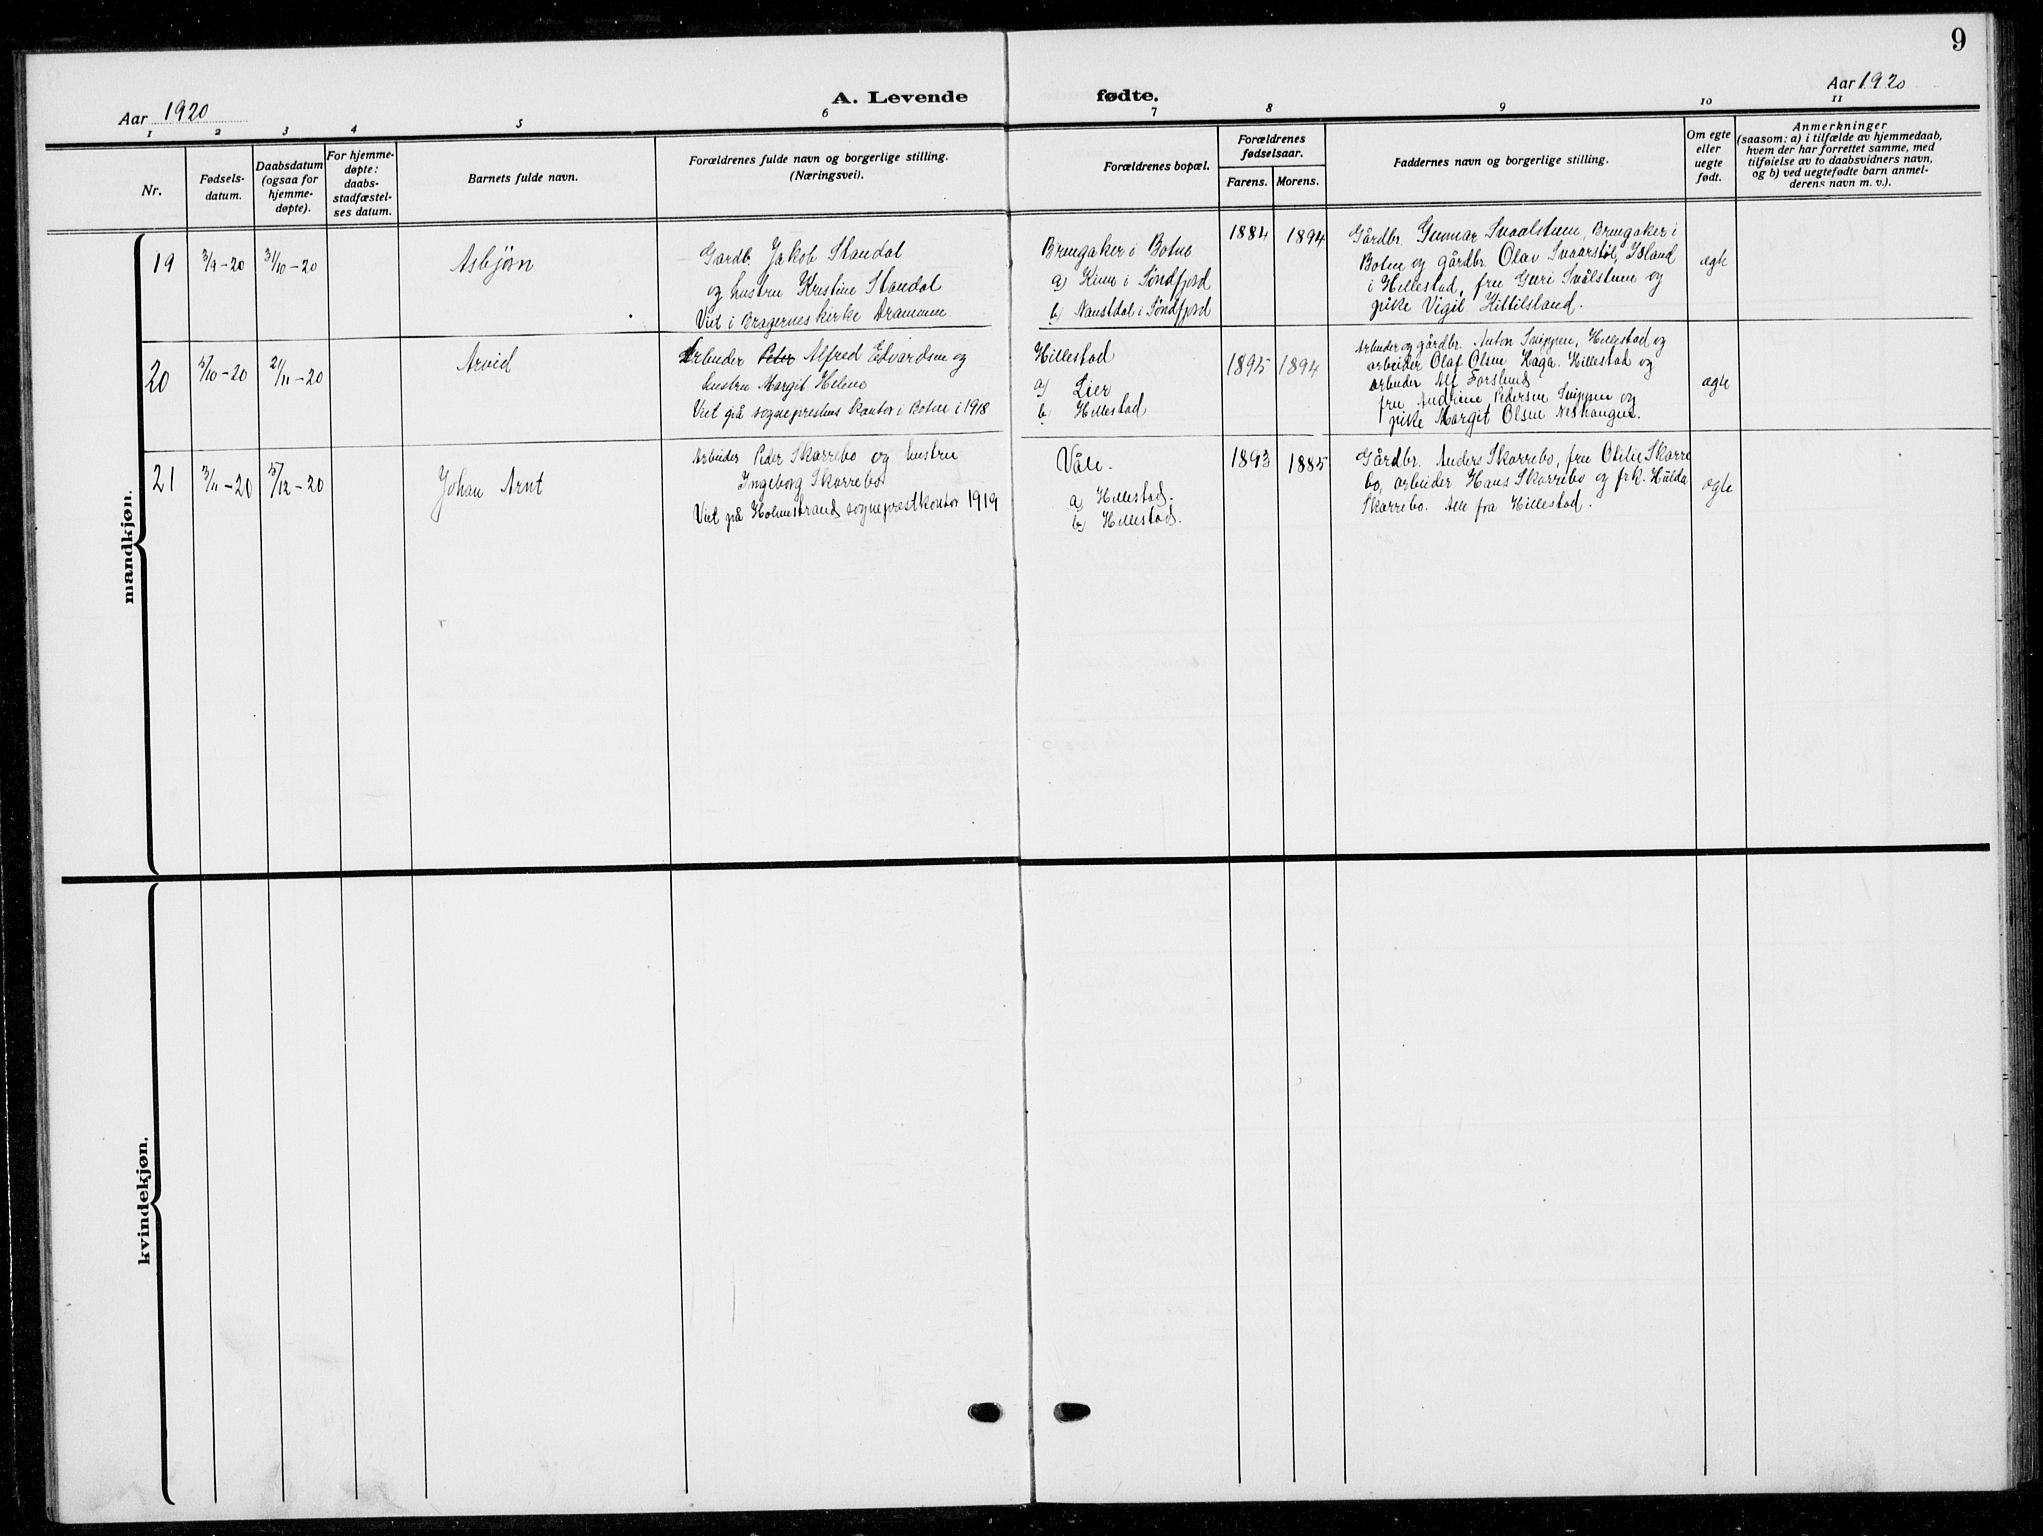 9
Aar 1920
A. Levende
fødte.
Aar 1920
1 2 3 4 5 6 7 8 9 10 11
Nr.
Fødsels-
datum.
Daabsdatum
(ogsaa for
hjemme-
døpte).
For hjemme-
døpte:
daabs-
stadfæstel-
ses datum.
Barnets fulde navn.
Forældrenes fulde navn og borgerlige stilling.
(Næringsvei).
Forældrenes bopæl.
Forældrenes
fødselsaar.
Farens. Morens.
Faddernes navn og borgerlige stilling.
Om egte
eller
uegte
født.
Anmerkninger
(saasom: a) i tilfælde av hjemmedaab,
hvem der har forrettet samme, med
tilføielse av to daabsvidners navn,
og b) ved uegtefødte barn anmel-
derens navn m. v.).
mandkjøn.
19
3/9-20
31/10-20
Asbjørn
Gardb. Jakob Standal
og hustru Kristine Standal
Viet i Bragernes kirke Drammen
Brengaker i Botne
a) Kinn i Søndfjord
b) Naustdal i Søndfjord
1884
1894
Gårdbr. Gunnar Svaalstuen, Brengaker i
Botne og gårdbr. Olav Svaarstøl, Island
i Hillestad, fru Guri Svålstuen og
pike Vigil Kittilsland.
ægte
20
5/10-20
21/11-20
Arvid
Arbeider Peter Alfred Edvardsen og
hustru Margit Helene
Viet på sogneprestens kontor i Botne i 1918
Hillestad
a) Lier
b) Hillestad
1895
1894
Arbeider og gårdbr. Anton Snippen, Hillestad og
arbeider Olaf Olsen Haga, Hillestad og
arbeider Alf Forslund
fru Andrine Pedersen Snippen og
pike Margit Olsen Neshaugen.
ægte
21
3/11-20
5/12-20
Johan Arnt
Arbeider Peder Skarrebo og hustru
Ingeborg Skarrebo
Viet på Holmestrand sogneprestkontor 1919
Våle.
a) Hillestad.
b) Hillestad.
1893
1885
Gårdbr. Anders Skarrebo, fru Otilie Skarre
bo, arbeider Hans Skarrebo og frk. Hulda
Skarrebo. Alle fra Hillestad.
ægte
kvindekjøn.